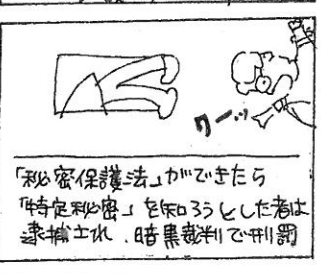 クー…
「秘密保護法」ができたら
「特定秘密」を知ろうとした者は
逮捕され、暗黒裁判で刑罰